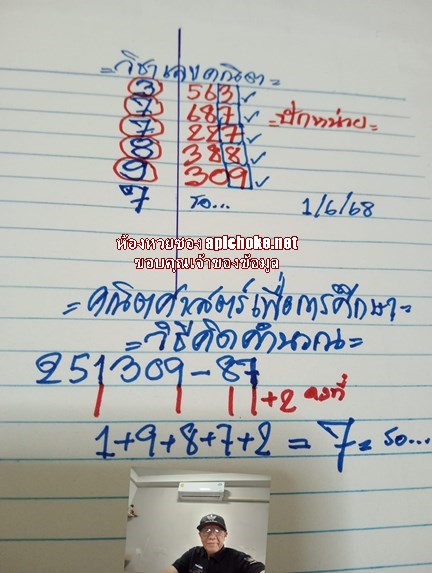 = วิชาเลขคณิต =
3 563 ✓
7 687 ✓ = ปักหน่วย =
7 227 ✓
8 388 ✓
9 309 ✓
7 รอ... 1/6/68
ห้องหวยซอง apichoke.net
ขอบคุณเจ้าของข้อมูล
= คณิตศาสตร์เพื่อการศึกษา =
= วิธีคิดคำนวณ =
251309-87
+2 คงที่
1+9+8+7+2 = 7 = รอ...